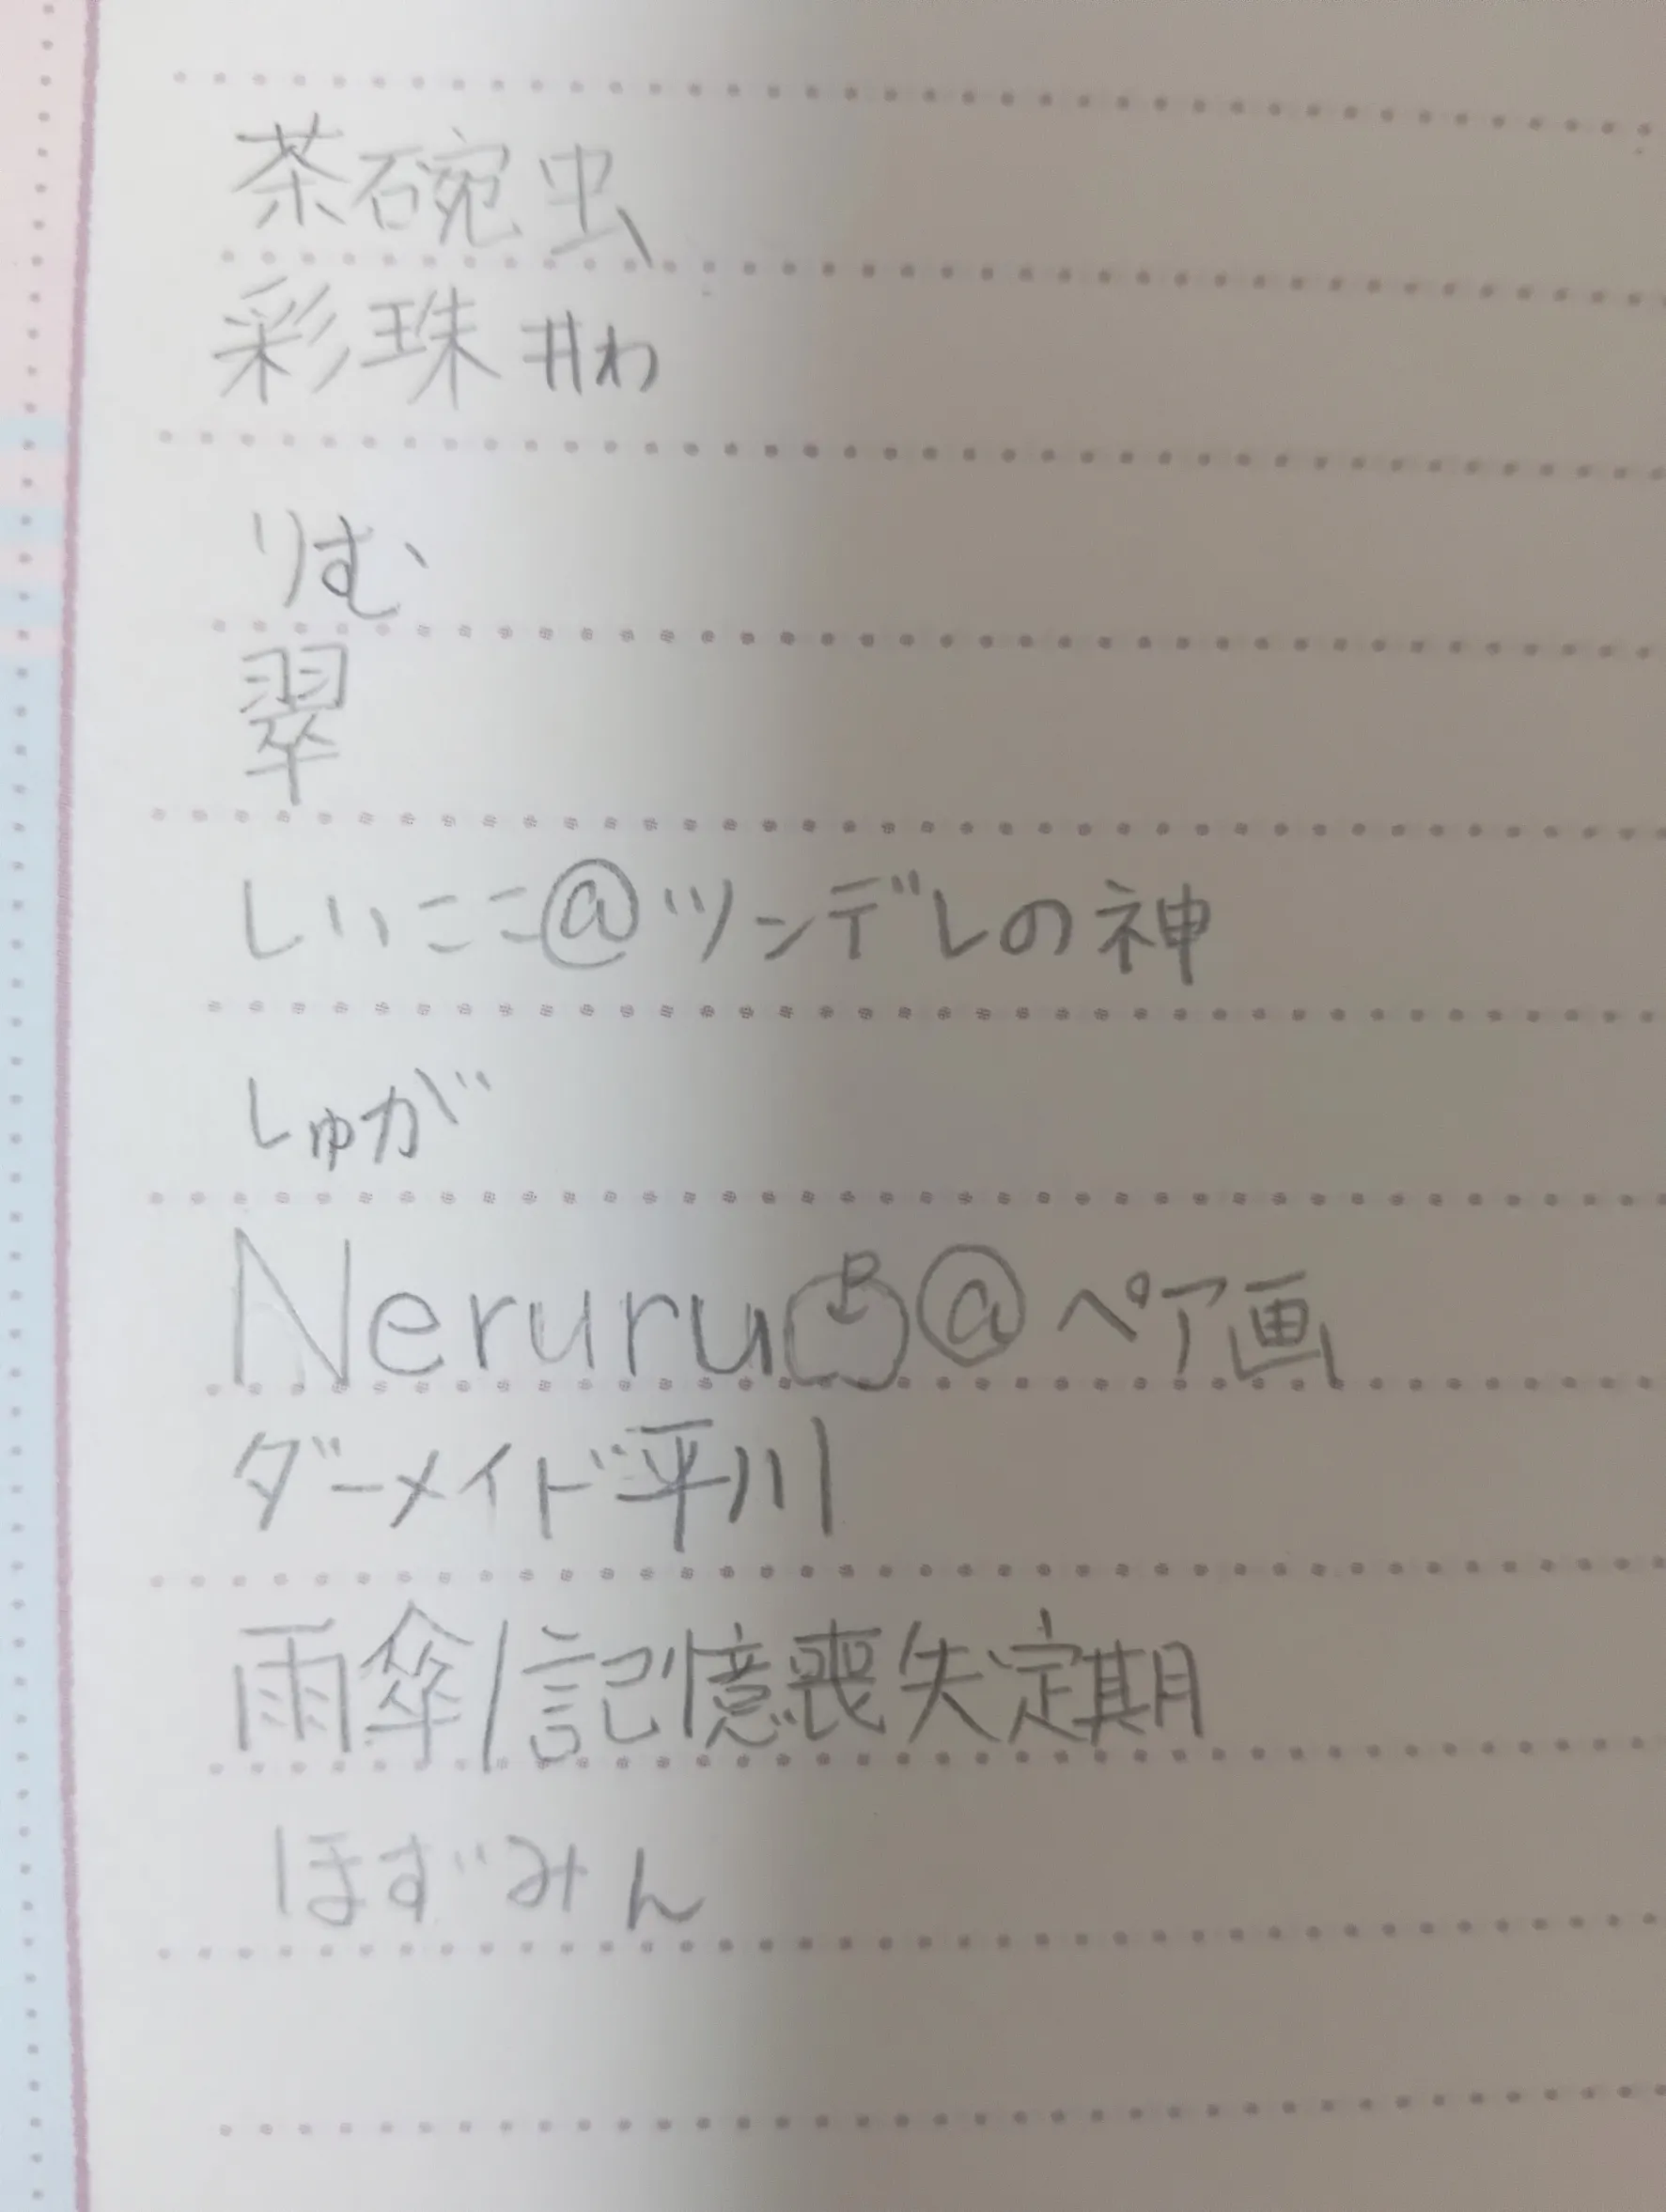 茶碗虫
彩珠#わ
りむ
翠
しいここ@ツンデレの神
しゅが
Neruru🍎@ペア画
ダーメイド平川
雨傘/記憶喪失定期
ほずみん